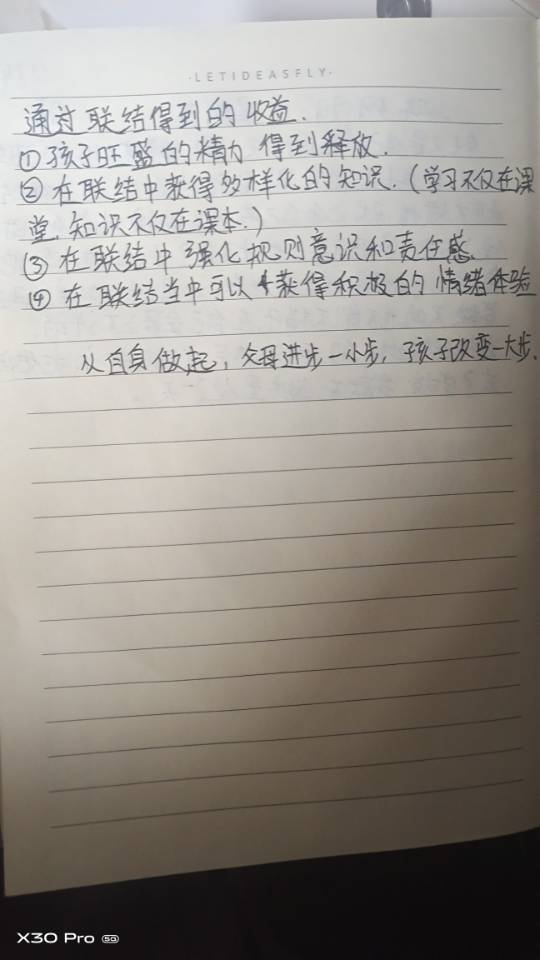 ·LETIDEASFLY·
通过联结得到的收益.
①孩子旺盛的精力 得到释放.
②在联结中获得多样化的知识.(学习不仅在课
堂,知识不仅在课本.)
③在联结中 强化规则意识和责任感
④在联结当中可以获得积极的情绪体验
从自身做起,父母进步一小步,孩子改变一大步.
X30 Pro 5G